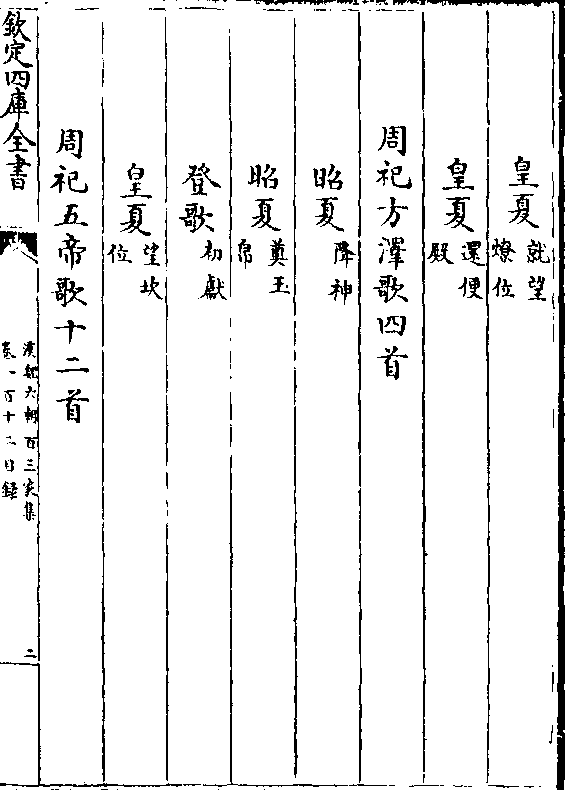 皇夏 就望燎位
皇夏 還便殿
周祀方澤歌四首
昭夏 降神
昭夏 奠玉帛
登歌 初獻
皇夏 望坎位
周祀五帝歌十二首
欽定四庫全書
漢魏六朝百三家集
卷一百十二目録
二